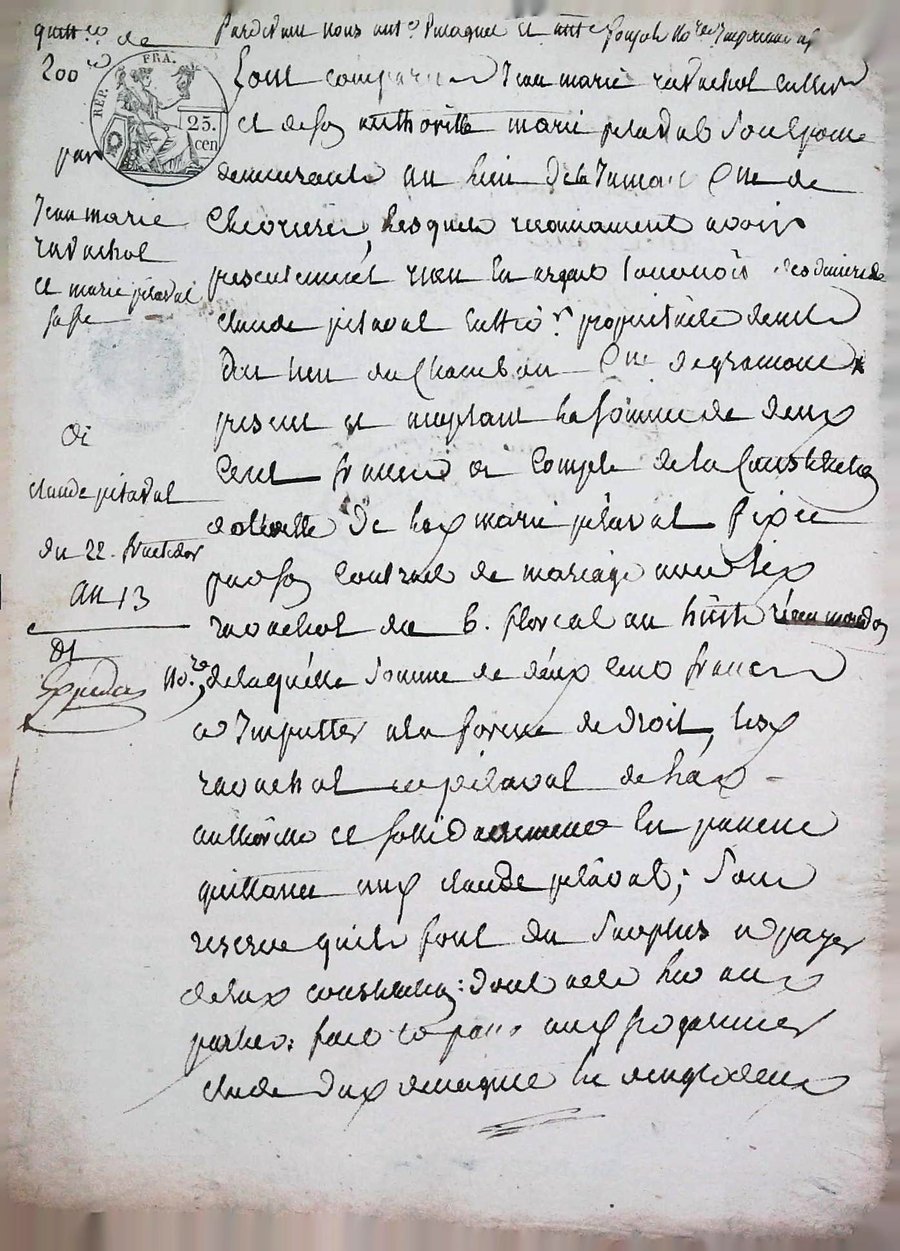 quitt.ce de
200 #
REP. FRA.
25.
cen
par
Jean marie
ravachol
et marie pitaval
sa fe
a
claude pitaval
du 22. fructidor
an 13
Expedié
Pardevant nous ant.e Dumaguet et ant.e no.res Imperiaux
sont comparus Jean marie ravachol cultiv.
et de son authorité marie pitaval son epouse
demeurants au lieu de la C.ne de
lesquels reconnaissent avoir
presentement reçu en argent des deniers de
claude pitaval cultiv.r proprietaire dem.t
au lieu du Chambon C.ne de gramont
present et acceptant la somme de deux
cent francs a compte de la constitution
dotalle de lad. marie pitaval fixée
par son contrat de mariage avec led.
ravachol du 6. floreal an huit
no.re de laquelle somme de deux cent francs
a Imputter a la forme de droit, led.
ravachol et pitaval de lad.
authorité et solidairement en passent
quittance aud. claude pitaval; sous
reserve qu'ils font du surplus a payer
de lad. constitution: dont acte lu aux
parties: fait et passé aud.
etude dud. dumaguet le vingt deux